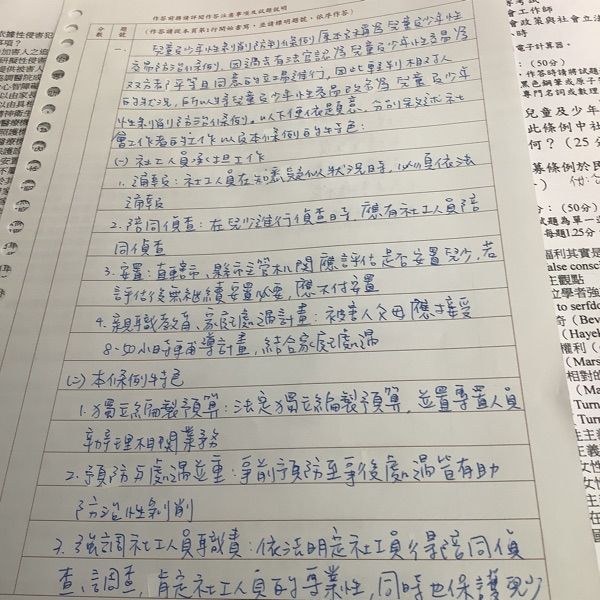 作答前務請詳閱作答注意事項及試題說明
分數
題號
（作答請從本頁第1行開始書寫，並請標明題號，依序作答）
一、
兒童及少年性剝削防制條例原本名稱為兒童及少年性
交易防治條例，因過去有法官認為兒童及少年性交易為
雙方者平等且同意的交易進行，因此輕判相對人
的狀況，所以將兒童及少年性交易改名為兒童及少年
性剝削防治條例。以下便依是題意，分別敘述社
會工作者的工作以及本條例的特色：
(一) 社工人員承担工作
1. 通報：社工人員在知悉疑似狀況時，必須依法
通報
2. 陪同偵查：在兒少進行偵查時，應有社工人員陪
同偵查
3. 安置：直轄市、縣市主管机関應評估是否安置兒少，若
評估後無繼續安置必要，應不付安置
4. 親職教育、家庭處遇計畫：被害人父母應接受
8-50小時輔導計畫，結合家庭處遇
(二) 本條例特色
1. 獨立編製預算：法定獨立編製預算，並置專置人員
辦理相関業務
2. 預防与處遇並重：事前預防至事後處遇皆有助
防治性剝削
3. 強調社工人員職責：依法明定社工員得陪同偵
查、調查，肯定社工人員的專業性，同時也保護兒少
會工作師
政策與社會立法
電子計算器。
（50分）
作答時請將試題
黑色鋼筆或原子
專門名詞或數理
兒童及少年
此條例中社
何？（25分
募條例於民
（50分）
試題為單一選
每題1.25分
福利其實是
false consc
主觀點
位學者強
to serfdo
奇（Bev
（Hayek
權利（
（Mars
相對的
（Mars
Turn
Turn
依據性侵害犯
事項？
加害人之追
研擬性侵害
提供被害人